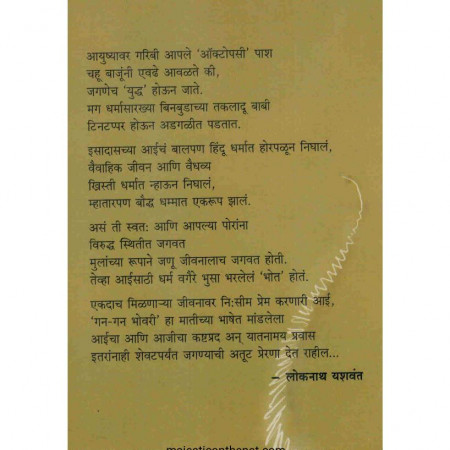 आयुष्यावर गरिबी आपले 'ऑक्टोपसी' पाश
चहू बाजूंनी एवढे आवळते की,
जगणेच 'युद्ध' होऊन जाते.
मग धर्मासारख्या बिनबुडाच्या तकलादू बाबी
टिनटप्पर होऊन अडगळीत पडतात.
इसादासच्या आईचं बालपण हिंदू धर्मात होरपळून निघालं,
वैवाहिक जीवन आणि वैधव्य
ख्रिस्ती धर्मात न्हाऊन निघालं,
म्हातारपण बौद्ध धम्मात एकरूप झालं.
असं ती स्वतः आणि आपल्या पोरांना
विरुद्ध स्थितीत जगवत
मुलांच्या रूपाने जणू जीवनालाच जगवत होती.
तेव्हा आईसाठी धर्म वगैरे भुसा भरलेलं 'भोत' होतं.
एकदाच मिळणाऱ्या जीवनावर निःसीम प्रेम करणारी आई,
'गन-गन भोवरी' हा मातीच्या भाषेत मांडलेला
आईचा आणि आजीचा कष्टप्रद अन् यातनामय प्रवास
इतरांनाही शेवटपर्यंत जगण्याची अतूट प्रेरणा देत राहील...
– लोकनाथ यशवंत